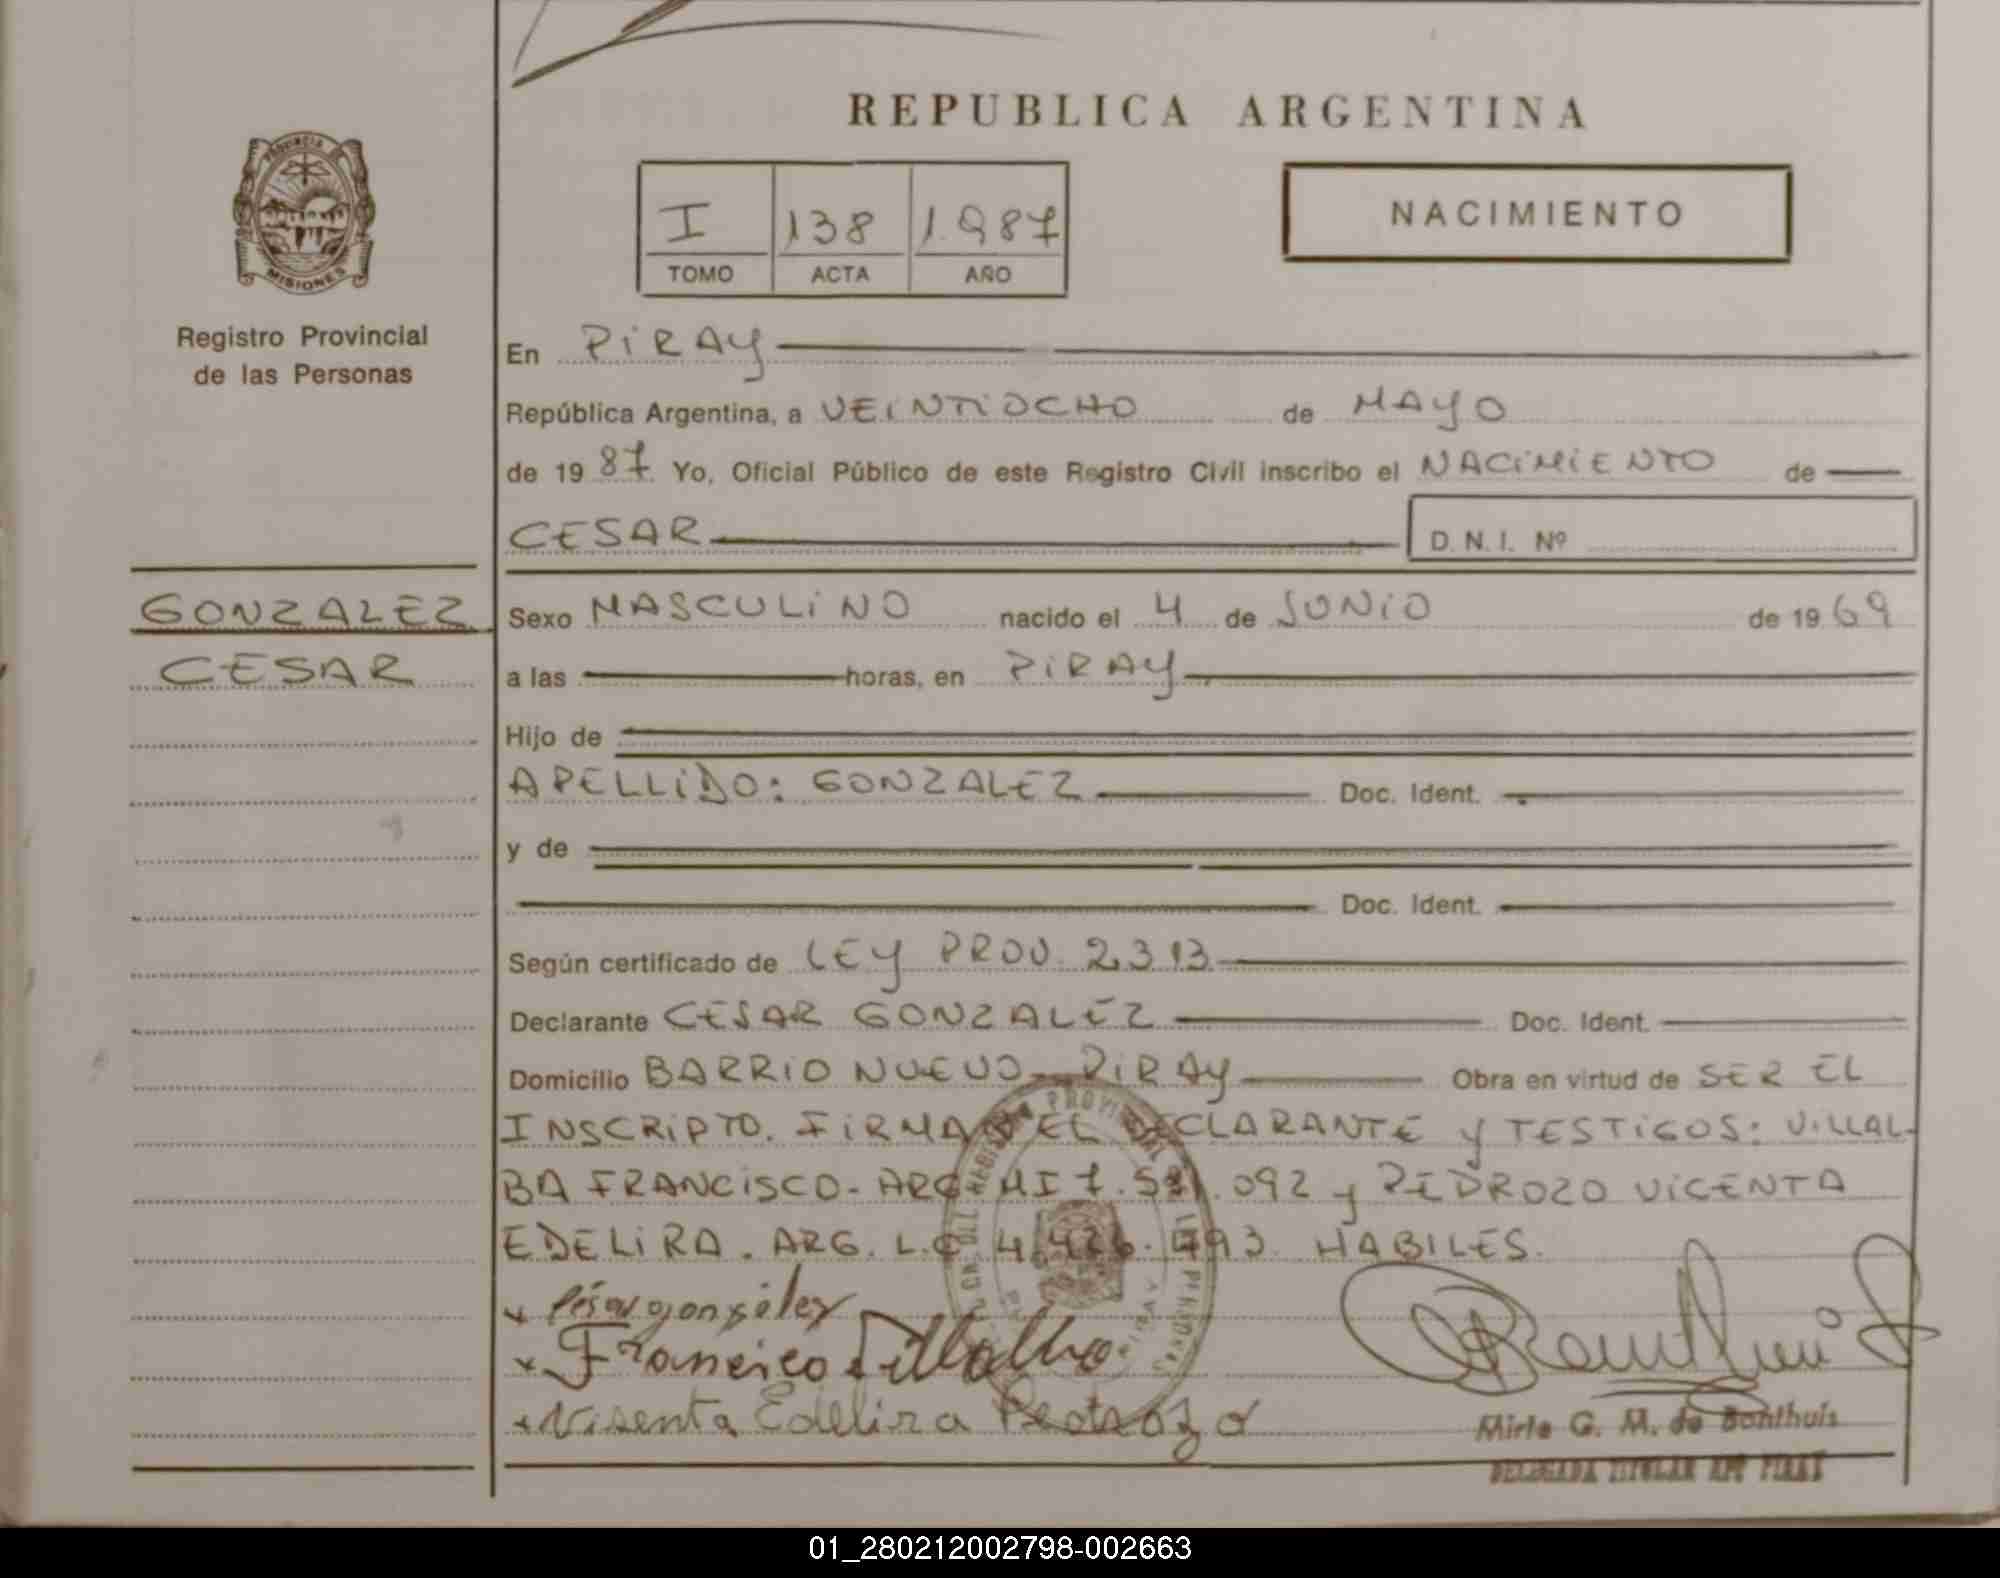 REPUBLICA ARGENTINA
PROVINCIA DE
MISIONES
Registro Provincial
de las Personas
I 138 1.987
TOMO ACTA AÑO
NACIMIENTO
En PIRAY
República Argentina, a VEINTIOCHO de MAYO
de 19 87 Yo, Oficial Público de este Registro Civil inscribo el NACIMIENTO de
CESAR D. N. I. Nº
GONZALEZ
CESAR
Sexo MASCULINO nacido el 4 de JUNIO de 19 69
a las horas, en PIRAY
Hijo de
APELLIDO: GONZALEZ Doc. Ident.
y de
Doc. Ident.
Según certificado de LEY PROV. 2313
Declarante CESAR GONZALEZ Doc. Ident.
Domicilio BARRIO NUEVO PIRAY Obra en virtud de SER EL
INSCRIPTO. FIRMA EL DECLARANTE Y TESTIGOS: VILLAL-
BA FRANCISCO- ARG. MI 7. .092 y PEDROZO VICENTA
EDELIRA. ARG. L.C. HABILES.
x César gonzález
x Francisco Villalba
x Visenta Edelira Pedrozo
Mirta G. M. de Bonthuis
DELEGADA TITULAR PIRAY
01_280212002798-002663